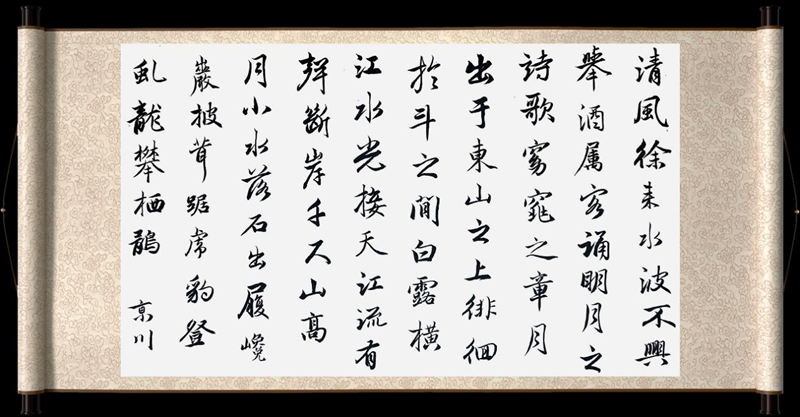 清風徐来水波不興
舉酒属客誦明月之
詩歌窈窕之章月
出于東山之上徘徊
扵斗之間白露橫
江水光接天江流有
聲斷岸千尺山高
月小水落石出履巉
巖披茸踞虎豹登
虬龍攀栖鶻 京川